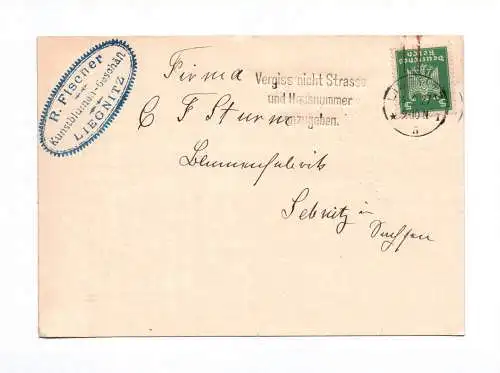 R. Fischer
Kunstblumen-Geschäft
LIEGNITZ
Firma
Vergiss nicht Strasse
und Hausnummer
anzugeben.
Deutsches
Reich
5 5
C F Sturm
Blumenfabrik
Sebnitz in
Sachsen